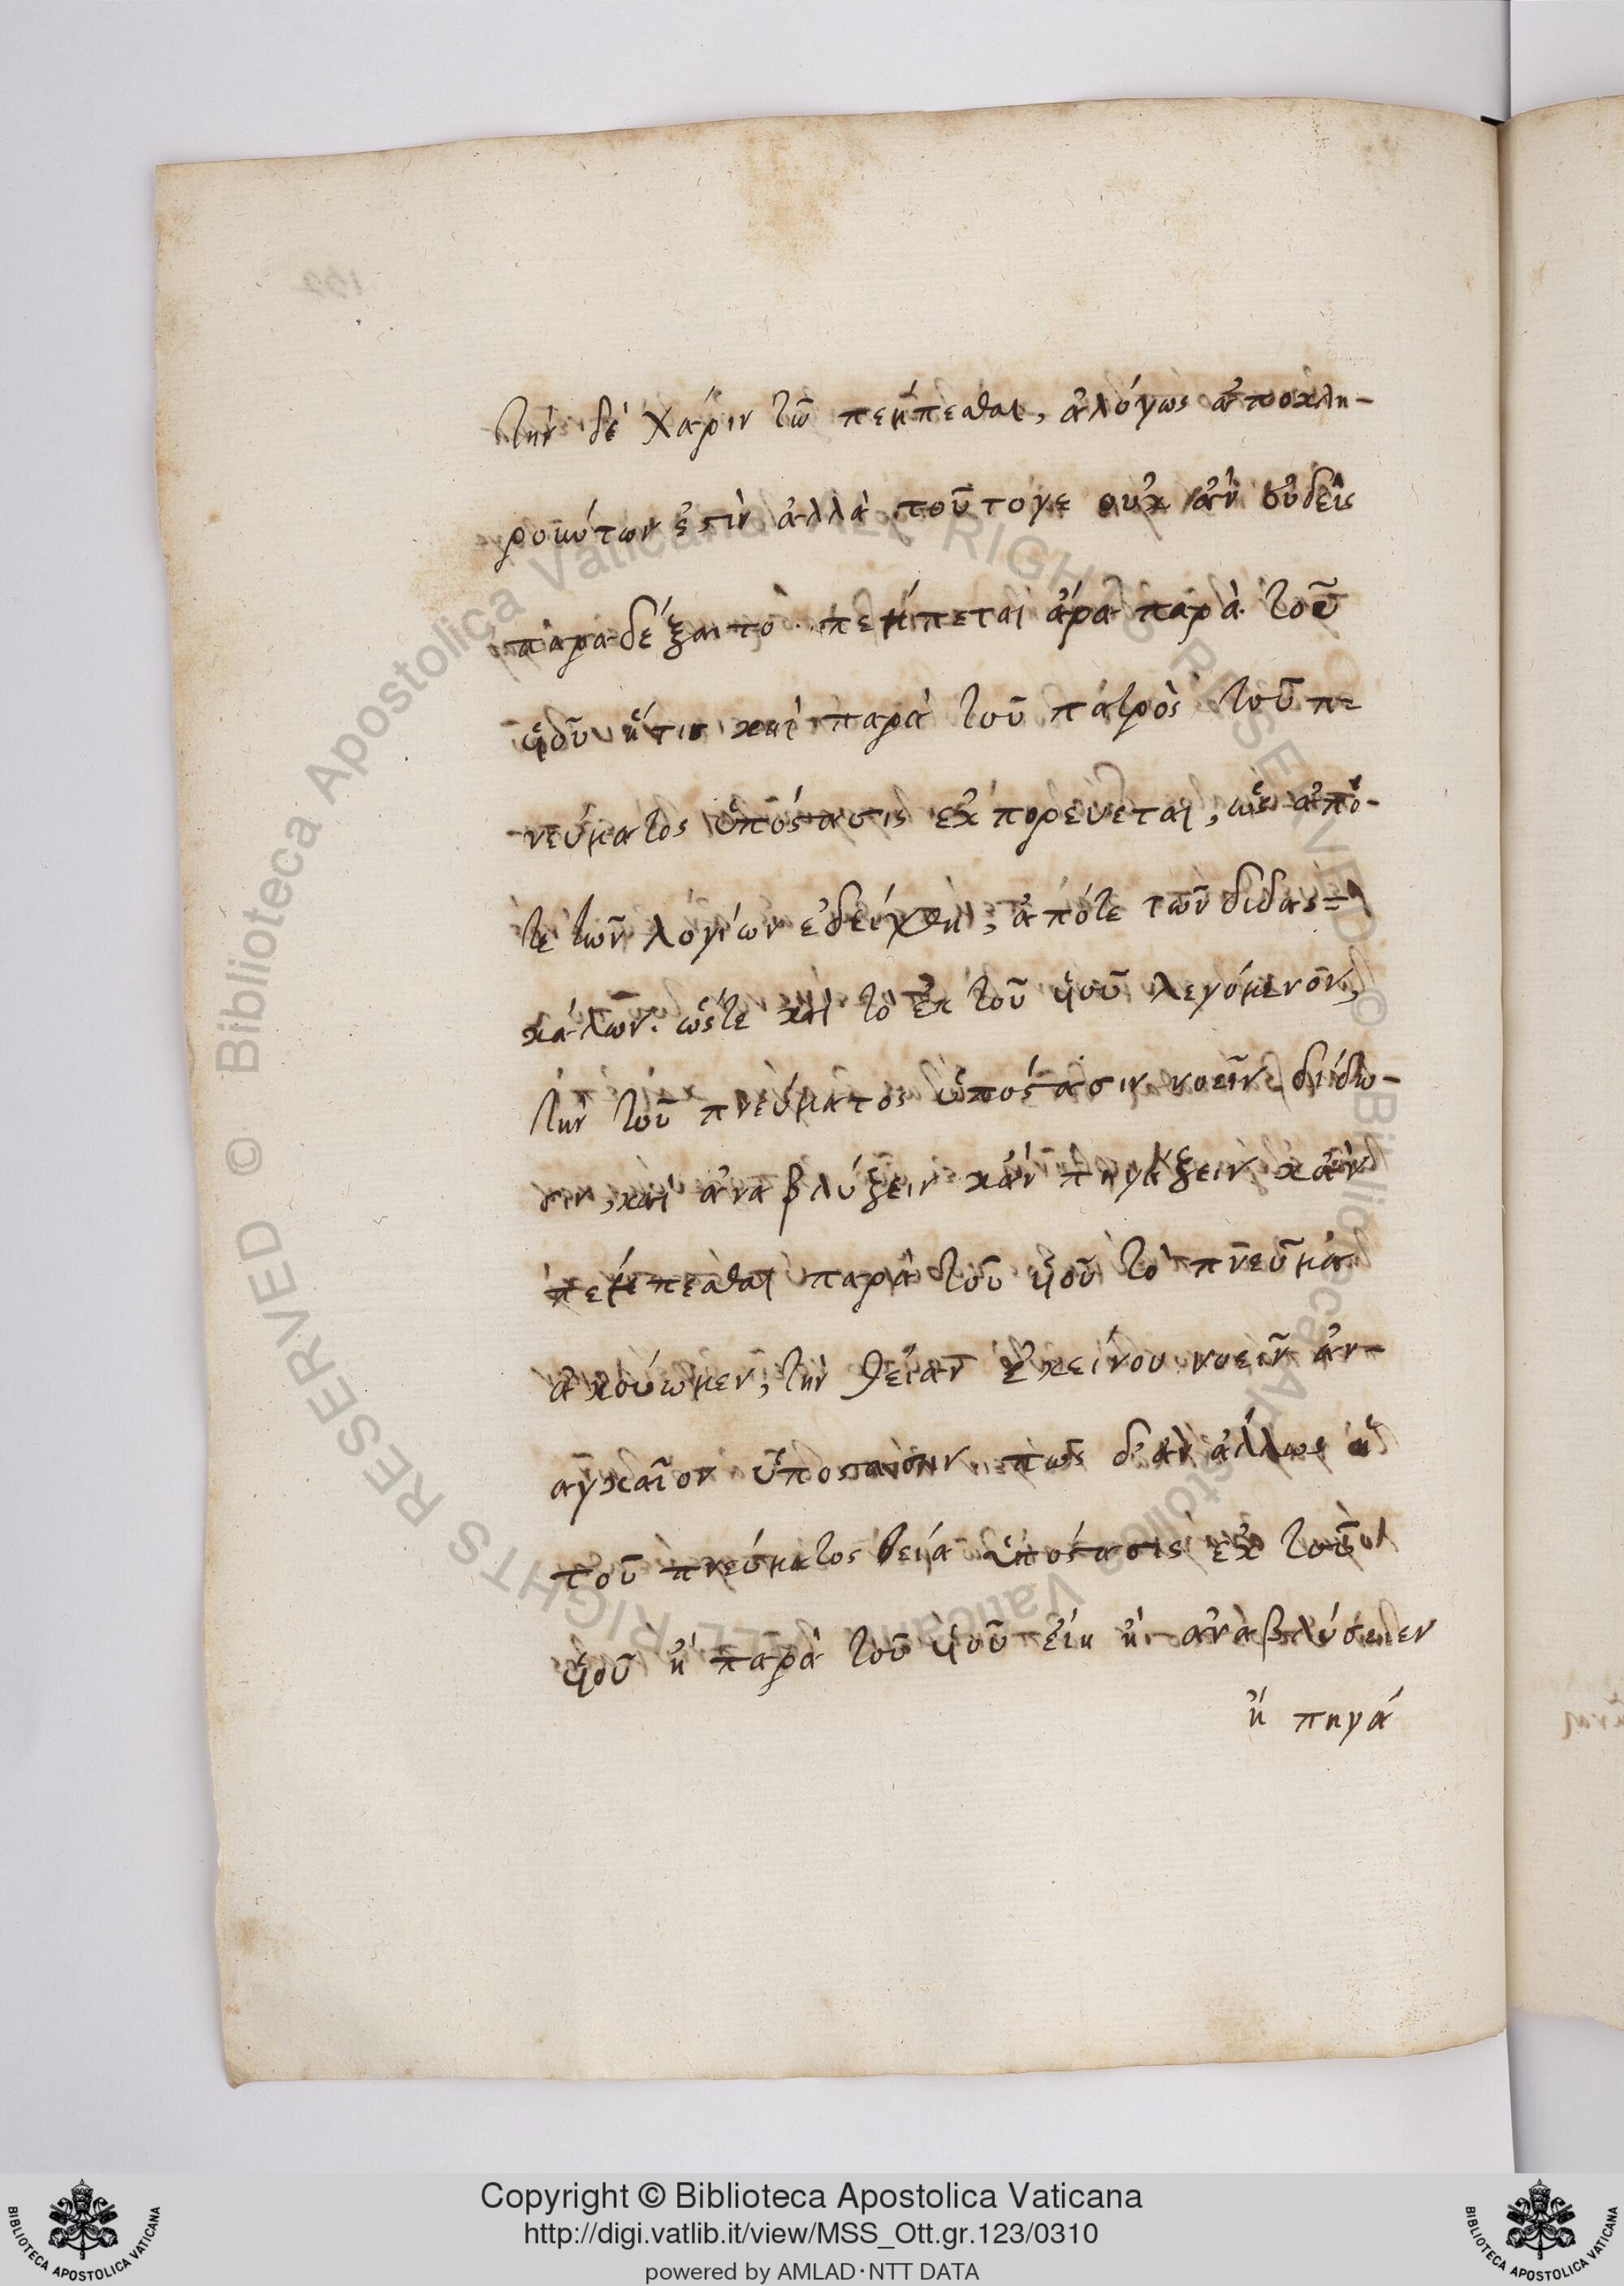 τὴν δὲ χάριν τῶ πέμπεσθαι, ἀλόγως ἀποκλη-
ρούντων ἐστὶν ἀλλὰ τοῦτογε οὐκ ἂν οὐδεὶς
παραδέξαιτο· πέμπεται ἄρα παρὰ τοῦ
ὑοῦ ἥτις καὶ παρὰ τοῦ πατρὸς τοῦ π=
νεύματος ὑπόστασις ἐκπορεύεται, ὡς ἀπό-
τε τῶν λογίων ἐδείχθη, ἀπότε τῶν διδασ=
κάλων. ὥστε καὶ τὸ ἐκ τοῦ ὑοῦ λεγόμενον,
τὴν τοῦ πνεύματος ὑπόστασιν νοεῖν δίδω-
σιν, καὶ ἀναβλύζειν κἂν πηγάζειν κἂν
πέμπεσθαι παρὰ τοῦ ὑοῦ τὸ πνεῦμα
ἀκούωμεν, τὴν θείαν ἐκείνου νοεῖν ἀν-
αγκαῖον ὑπόστασιν πῶς δ' ἂν ἄλλως ἡ
τοῦ πνεύματος θεία ὑπόστασις ἐκ τοῦ
ὑοῦ ἢ παρὰ τοῦ ὑοῦ εἴη ἢ ἀναβλύσειεν
ἢ πηγά
Copyright © Biblioteca Apostolica Vaticana
http://digi.vatlib.it/view/MSS_Ott.gr.123/0310
powered by AMLAD·NTT DATA
BIBLIOTECA APOSTOLICA VATICANA
BIBLIOTECA APOSTOLICA VATICANA
© Biblioteca Apostolica Vaticana ALL RIGHTS RESERVED © Biblioteca Apostolica Vaticana ALL RIGHTS RESERVED